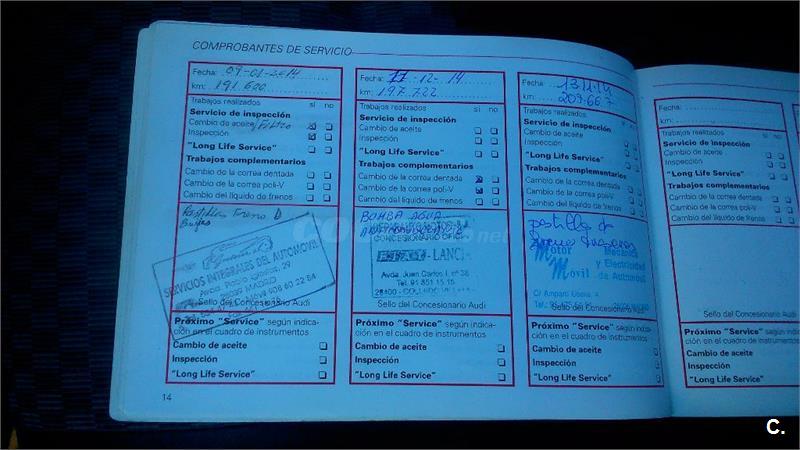 COMPROBANTES DE SERVICIO
Fecha: 09-01-2014
km: 191.620
Trabajos realizados sí no
Servicio de inspección
Cambio de aceite/Filtro
Inspección
"Long Life Service"
Trabajos complementarios
Cambio de la correa dentada
Cambio de la correa poli-V
Cambio del líquido de frenos
Pastillas Freno D
SERVICIOS INTEGRALES DEL AUTOMOVIL
Avda. Pablo Iglesias, 29
MADRID
Sello del Concesionario Audi
Próximo "Service" según indica-
ción en el cuadro de instrumentos
Cambio de aceite
Inspección
"Long Life Service"
14
Fecha: 11-12-14
km: 197.722
Trabajos realizados sí no
Servicio de inspección
Cambio de aceite
Inspección
"Long Life Service"
Trabajos complementarios
Cambio de la correa dentada
Cambio de la correa poli-V
Cambio del líquido de frenos
BOMBA AGUA
CONCESIONARIO OFIC.
FIAT-LANC
Avda. Juan Carlos I, nº 38
Tel. 91 851 15 15
Sello del Concesionario Audi
Próximo "Service" según indica-
ción en el cuadro de instrumentos
Cambio de aceite
Inspección
"Long Life Service"
Fecha: 13.11.14
km: 209.667
Trabajos realizados sí no
Servicio de inspección
Cambio de aceite
Inspección
"Long Life Service"
Trabajos complementarios
Cambio de la correa dentada
Cambio de la correa poli-V
Cambio del líquido de frenos
pastilla de
Motor Mecánica
y Electricidad
Movil de Automovil
Sello del Concesionario Audi
Próximo "Service" según indica-
ción en el cuadro de instrumentos
Cambio de aceite
Inspección
"Long Life Service"
Fecha:
km:
Trabajos realizados sí no
Servicio de inspección
Cambio de aceite
Inspección
"Long Life Service"
Trabajos complementarios
Cambio de la correa dentada
Cambio de la correa poli-V
Cambio del líquido de frenos
Sello del Concesionario Audi
Próximo "Service" según indica-
ción en el cuadro de instrumentos
Cambio de aceite
Inspección
"Long Life Service"
C.